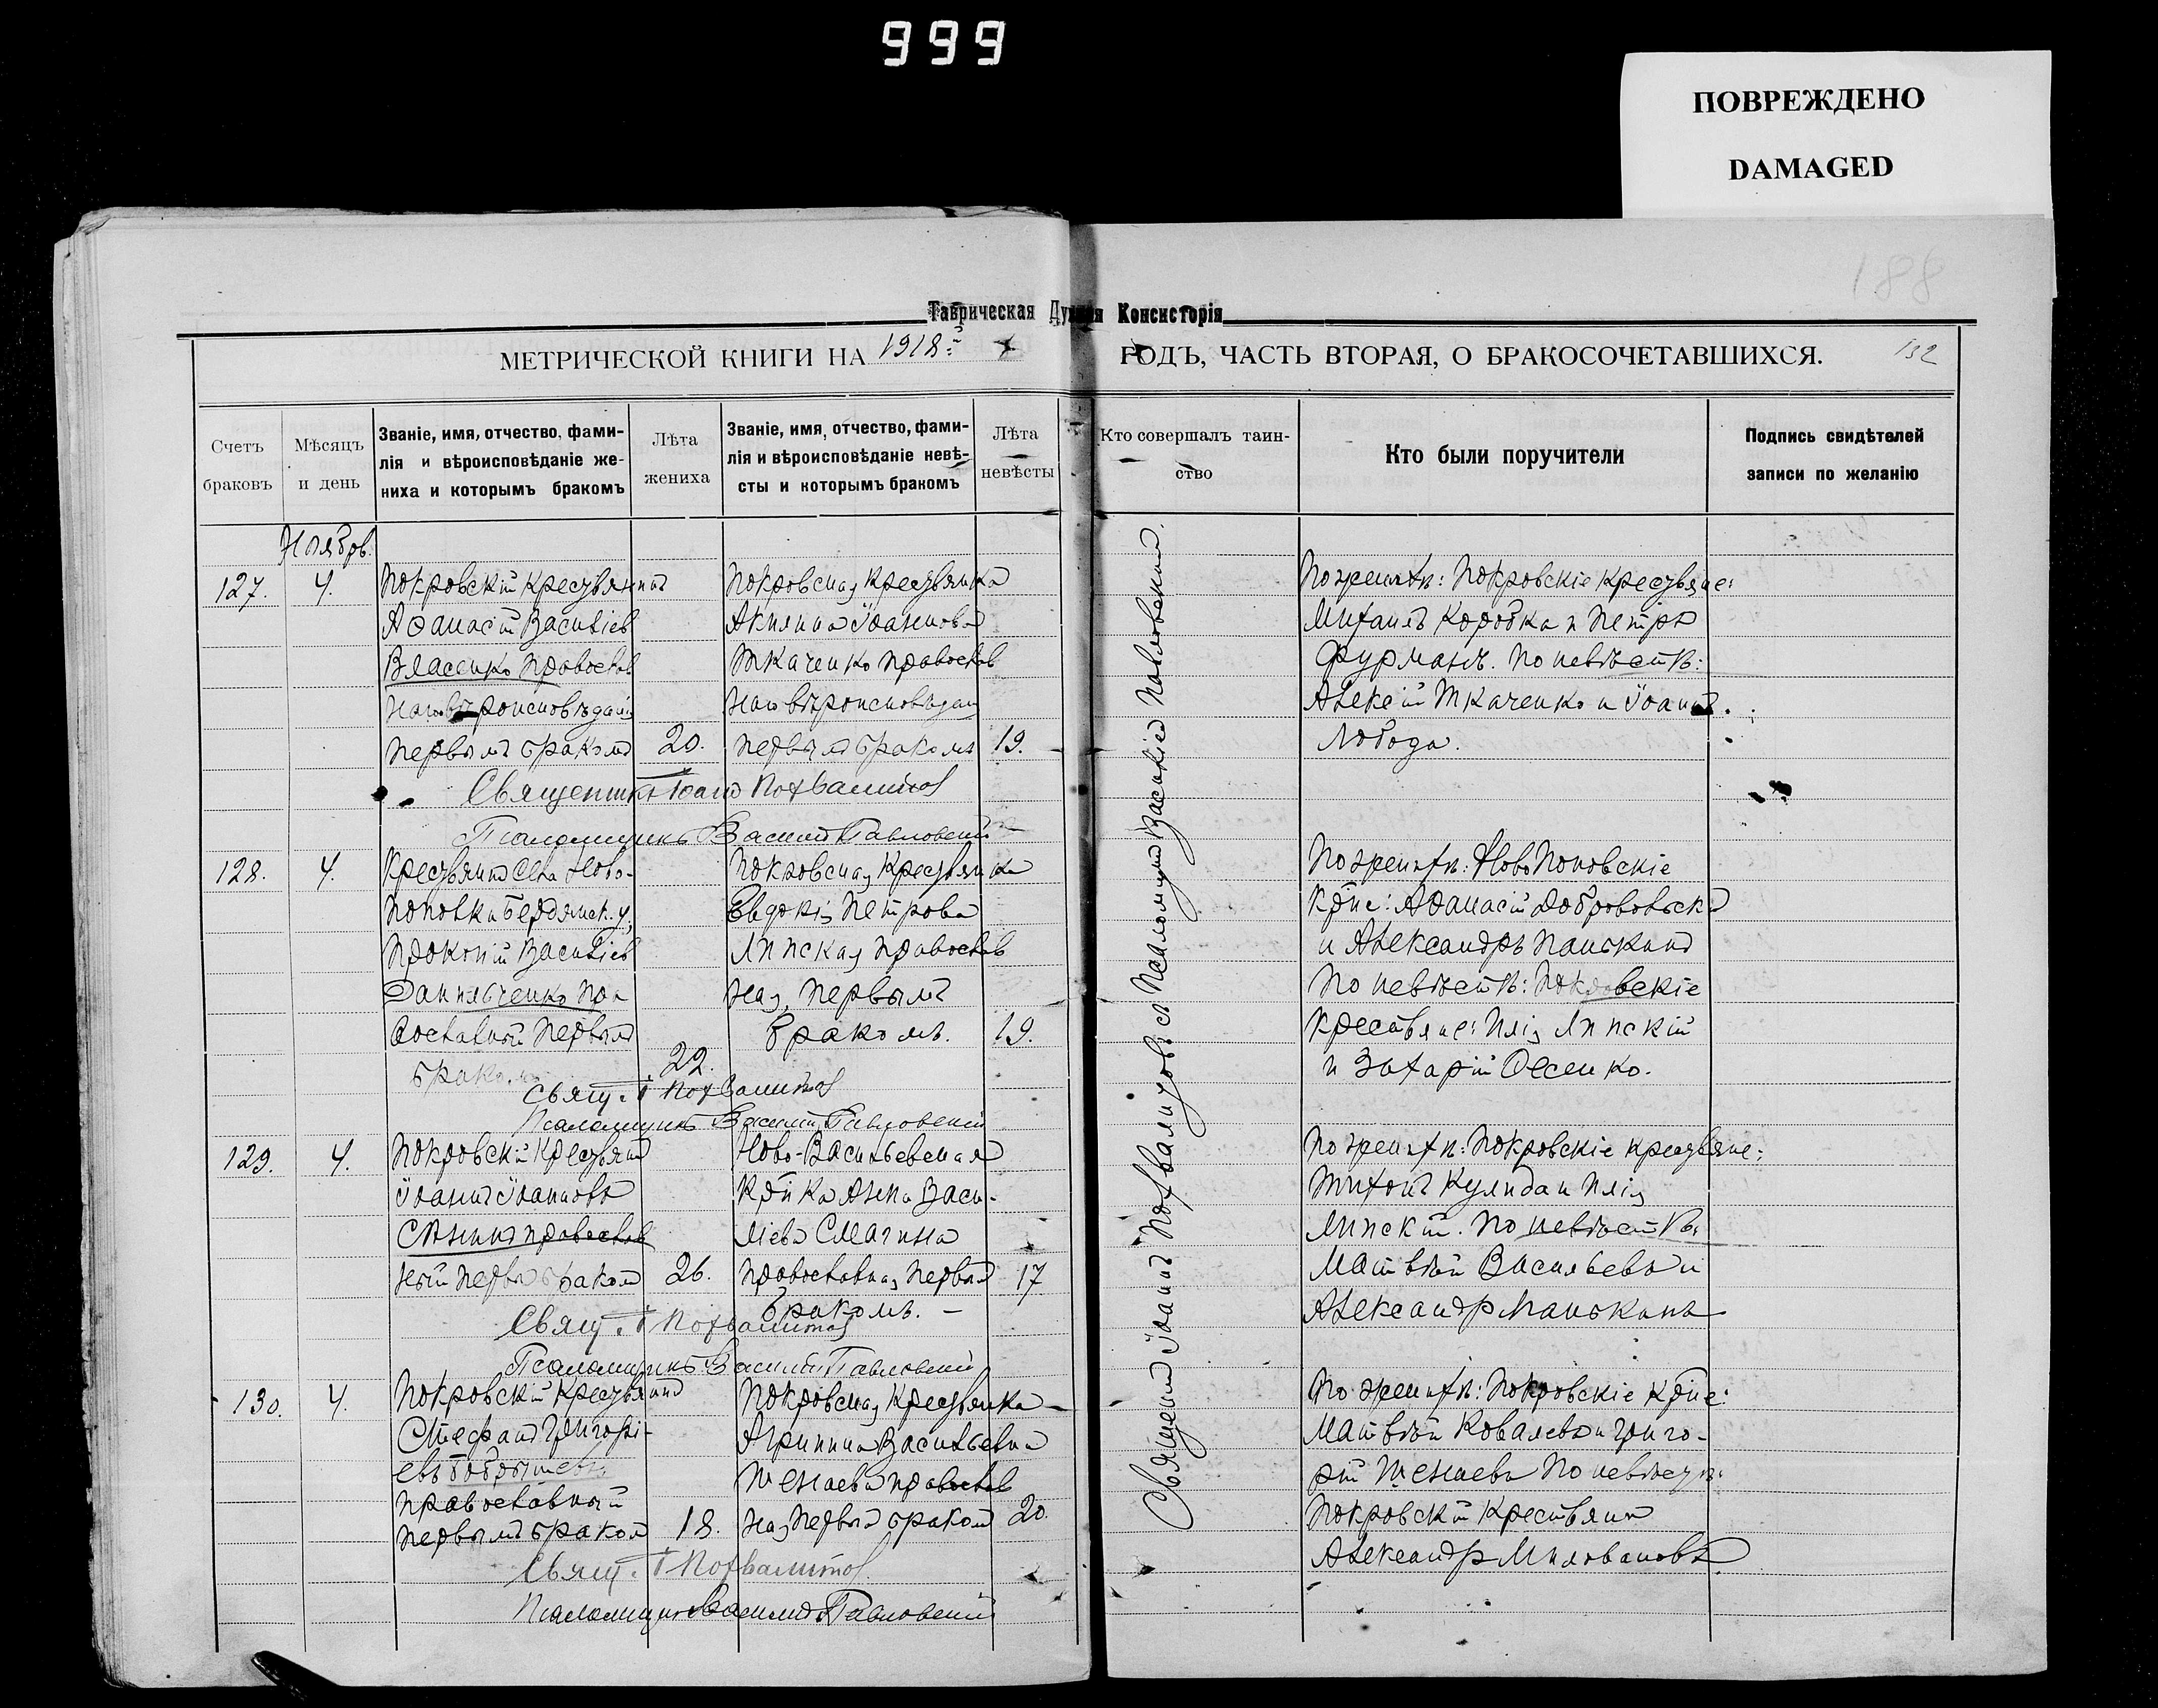 999
ПОВРЕЖДЕНО
DAMAGED
188
Таврическая Духовная Консисторія
МЕТРИЧЕСКОЙ КНИГИ НА 1918 ГОДЪ, ЧАСТЬ ВТОРАЯ, О БРАКОСОЧЕТАВШИХСЯ.
132
Счетъ браковъ
Мѣсяцъ и день
Званіе, имя, отчество, фами-
лія и вѣроисповѣданіе же-
ниха и которымъ бракомъ
Лѣта жениха
Званіе, имя, отчество, фами-
лія и вѣроисповѣданіе невѣ-
сты и которымъ бракомъ
Лѣта невѣсты
Кто совершалъ таин-
ство
Кто были поручители
Подпись свидѣтелей
записи по желанію
Ноябрь
127.
4.
Покровскій крестьянинъ
Аѳанасій Василіев
Власенко православ
наго вѣроисповѣданія
первымъ бракомъ
20.
Покровская крестьянка
Акилина Іоаннова
Ткаченко православ
наго вѣроисповѣдан
первым бракомъ
19.
По женихѣ: Покровскіе крестьяне:
Михаилъ Коробка и Петръ
Фурманъ. По невѣстѣ:
Алексій Ткаченко и Іоаннъ
Лобода.
Священникъ Іоаннъ Похвалитов
Псаломщикъ Василій Павловскій
128.
4.
Крестьянинъ села Ново-
поповки Бердянск. у.
Прокопій Василіев
Данильченко пра
вославный первымъ
бракомъ
22.
Покровская крестьянка
Евдокія Петрова
Липская православ
ная, первымъ
бракомъ.
19.
По женихѣ: Ново Поповскіе
Кр̃не: Аѳанасій Добровольскій
и Александръ Панькинъ
По невѣстѣ: Покровскіе
крестьяне: Илія Липскій
и Захарій Фесенко.
Свящ. І Похвалитов
Псаломщикъ Василій Павловскій
129.
4.
Покровскій крестьян
Іоаннъ Іоанновъ
Сѣнинъ православ
ный первы бракомъ
26.
Ново-Васильевская
Кр̃нка Анна Васи-
ліева Смагина
православная первым
бракомъ. —
17
По женихѣ: Покровскіе крестьяне:
Тихонъ Кулида и Илія
Липскій. По невѣстѣ:
Матвѣй Васильевъ и
Александр Панькинъ
Свящ. І Похвалитов
Псаломщикъ Василій Павловскій
130.
4.
Покровскій крестьянинъ
Стефанъ Григорі-
евъ Бобрышевъ
православный
первымъ браком
18.
Покровская крестьянка —
Агрипина Васильевна
православ
ная первым браком
20.
По женихѣ: Покровскіе Кр̃не:
Матвѣй Ковалевъ и Григо-
рій
По невѣстѣ:
Покровскій крестьянин
Александр Миловановъ
Свящ. І Похвалитов.
Псаломщикъ Василій Павловскій
Священникъ Іоаннъ Похвалитовъ съ Псаломщикомъ Василіемъ Павловскимъ.